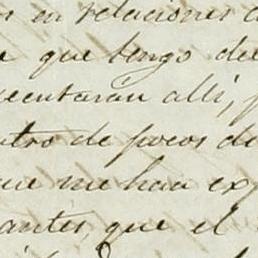 en relaciones
que tengo de
ecutarán alli,
ntro de pocos d
ue me han ex
antes que el